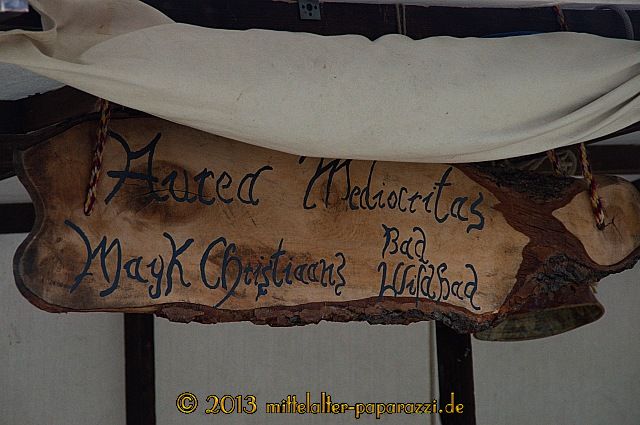 Aurea Mediocritas
Mayk Christians Bad Wildbad
© 2013 mittelalter-paparazzi.de